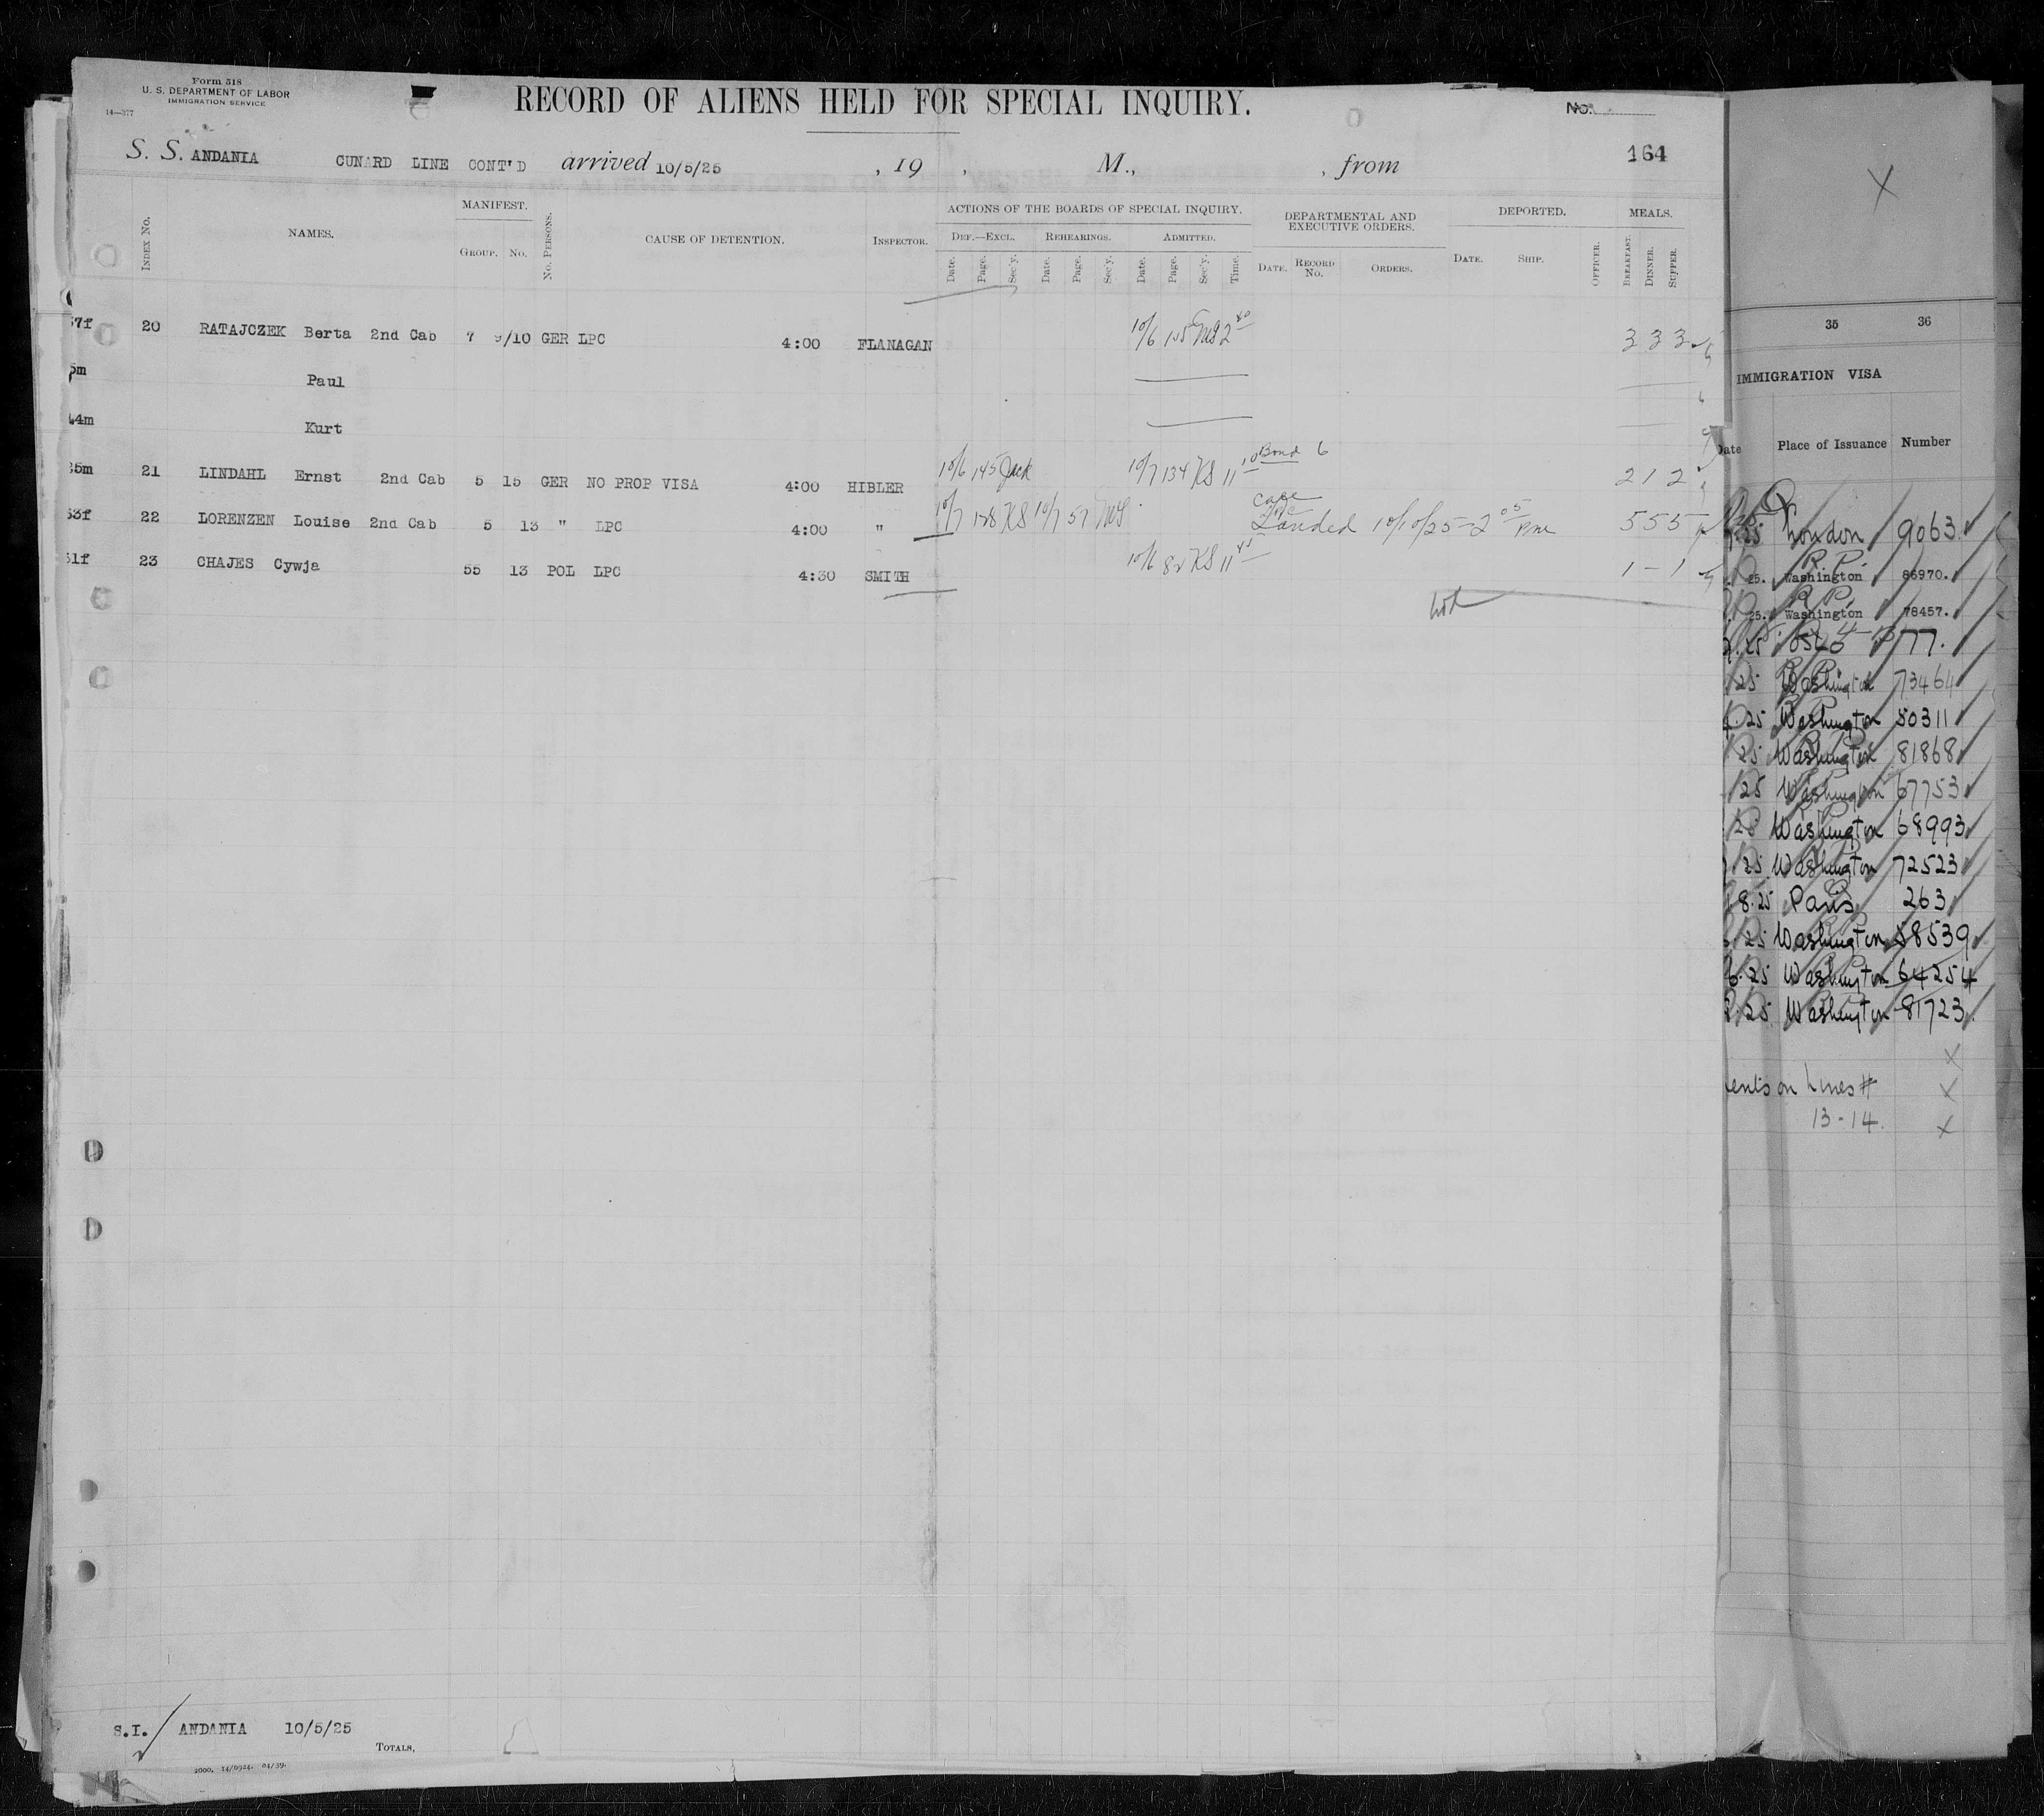 Form 518
U. S. DEPARTMENT OF LABOR
IMMIGRATION SERVICE
14—377
RECORD OF ALIENS HELD FOR SPECIAL INQUIRY.
No.
164
S. S. ANDANIA CUNARD LINE CONT'D arrived 10/5/25 , 19 , M., , from
INDEX No. NAMES. MANIFEST. GROUP. No. No. PERSONS. CAUSE OF DETENTION. INSPECTOR.
ACTIONS OF THE BOARDS OF SPECIAL INQUIRY. DEF.—EXCL. REHEARINGS. ADMITTED.
Date. Page. Sec'y. Date. Page. Sec'y. Date. Page. Sec'y. Time.
DEPARTMENTAL AND EXECUTIVE ORDERS. DATE. RECORD No. ORDERS.
DEPORTED. DATE. SHIP. OFFICER. MEALS. BREAKFAST. DINNER. SUPPER.
37f 20 RATAJCZEK Berta 2nd Cab 7 9/10 GER LPC 4:00 FLANAGAN 10/6 155 MS 2 40 3 3 3
5m Paul
44m Kurt
35m 21 LINDAHL Ernst 2nd Cab 5 15 GER NO PROP VISA 4:00 HIBLER 10/6 145 Jack 10/7 134 KS 11 10 Bond 6 2 1 2
33f 22 LORENZEN Louise 2nd Cab 5 13 " LPC 4:00 " 10/7 128 KS 10/7 57 MS Landed 10/10/25-2 05 Pm 5 5 5
31f 23 CHAJES Cywja 55 13 POL LPC 4:30 SMITH 10/6 82 KS 11 45 1 - 1
S.I. ANDANIA 10/5/25
TOTALS,
X
35 36
IMMIGRATION VISA
Date Place of Issuance Number
25 London 9063
25. Washington 86970.
25. Washington 78457.
25 Oslo 177.
25 Washington 73464
25 Washington 50311
25 Washington 81868
25 Washington 67753
25 Washington 68993
25 Washington 72523
8.25 Paris 263
25 Washington 58539
6.25 Washington 64254
25 Washington 81723
X
on Lines # X
13-14. X